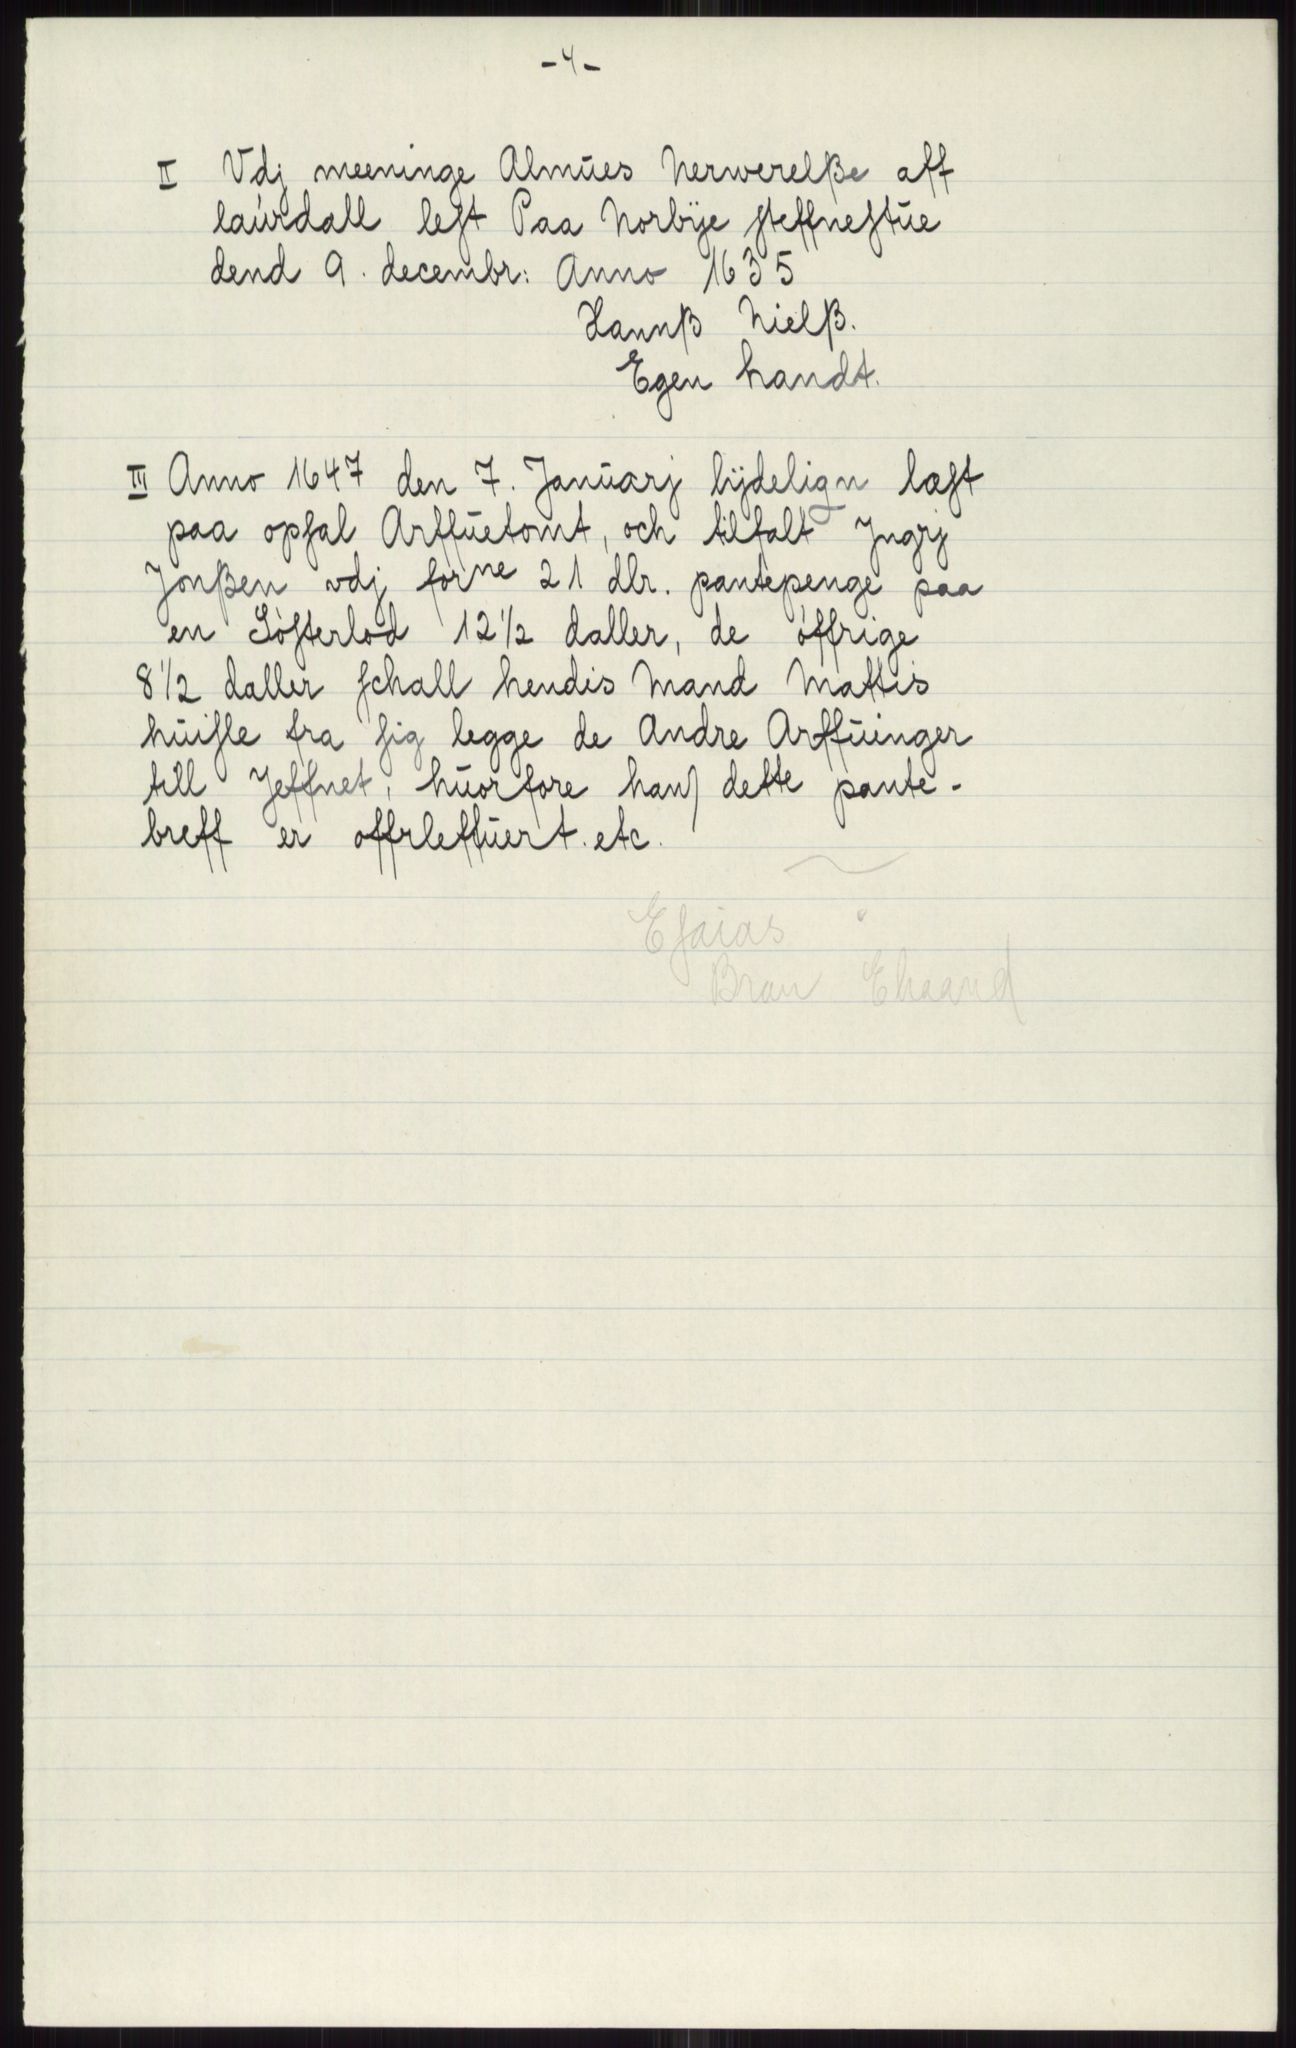 -4-
II Vdj meeninge Almŭes Nerwerelße aff
laŭrdall lest Paa Norbÿe steffnestŭe
dend 9. decembr: Anno 1635
Hannß Nielß.
Egen handt.
III Anno 1647 den 7. Janŭarj lÿdelign læst
paa opsal Arffŭetomt, och tilfalt Jngrj
Jonßen vdj forne 21 dlr. pantepenge paa
en Sösterlod 12½ daller, de öffrige
8½ daller schall hendis Mand Mattis
hŭisle fra sig legge de Andre Arffŭinger
till Jeffnet, hŭorfore hans dette pante-
breff er offrleffŭert. etc.
Esaias
Bran Ehaand